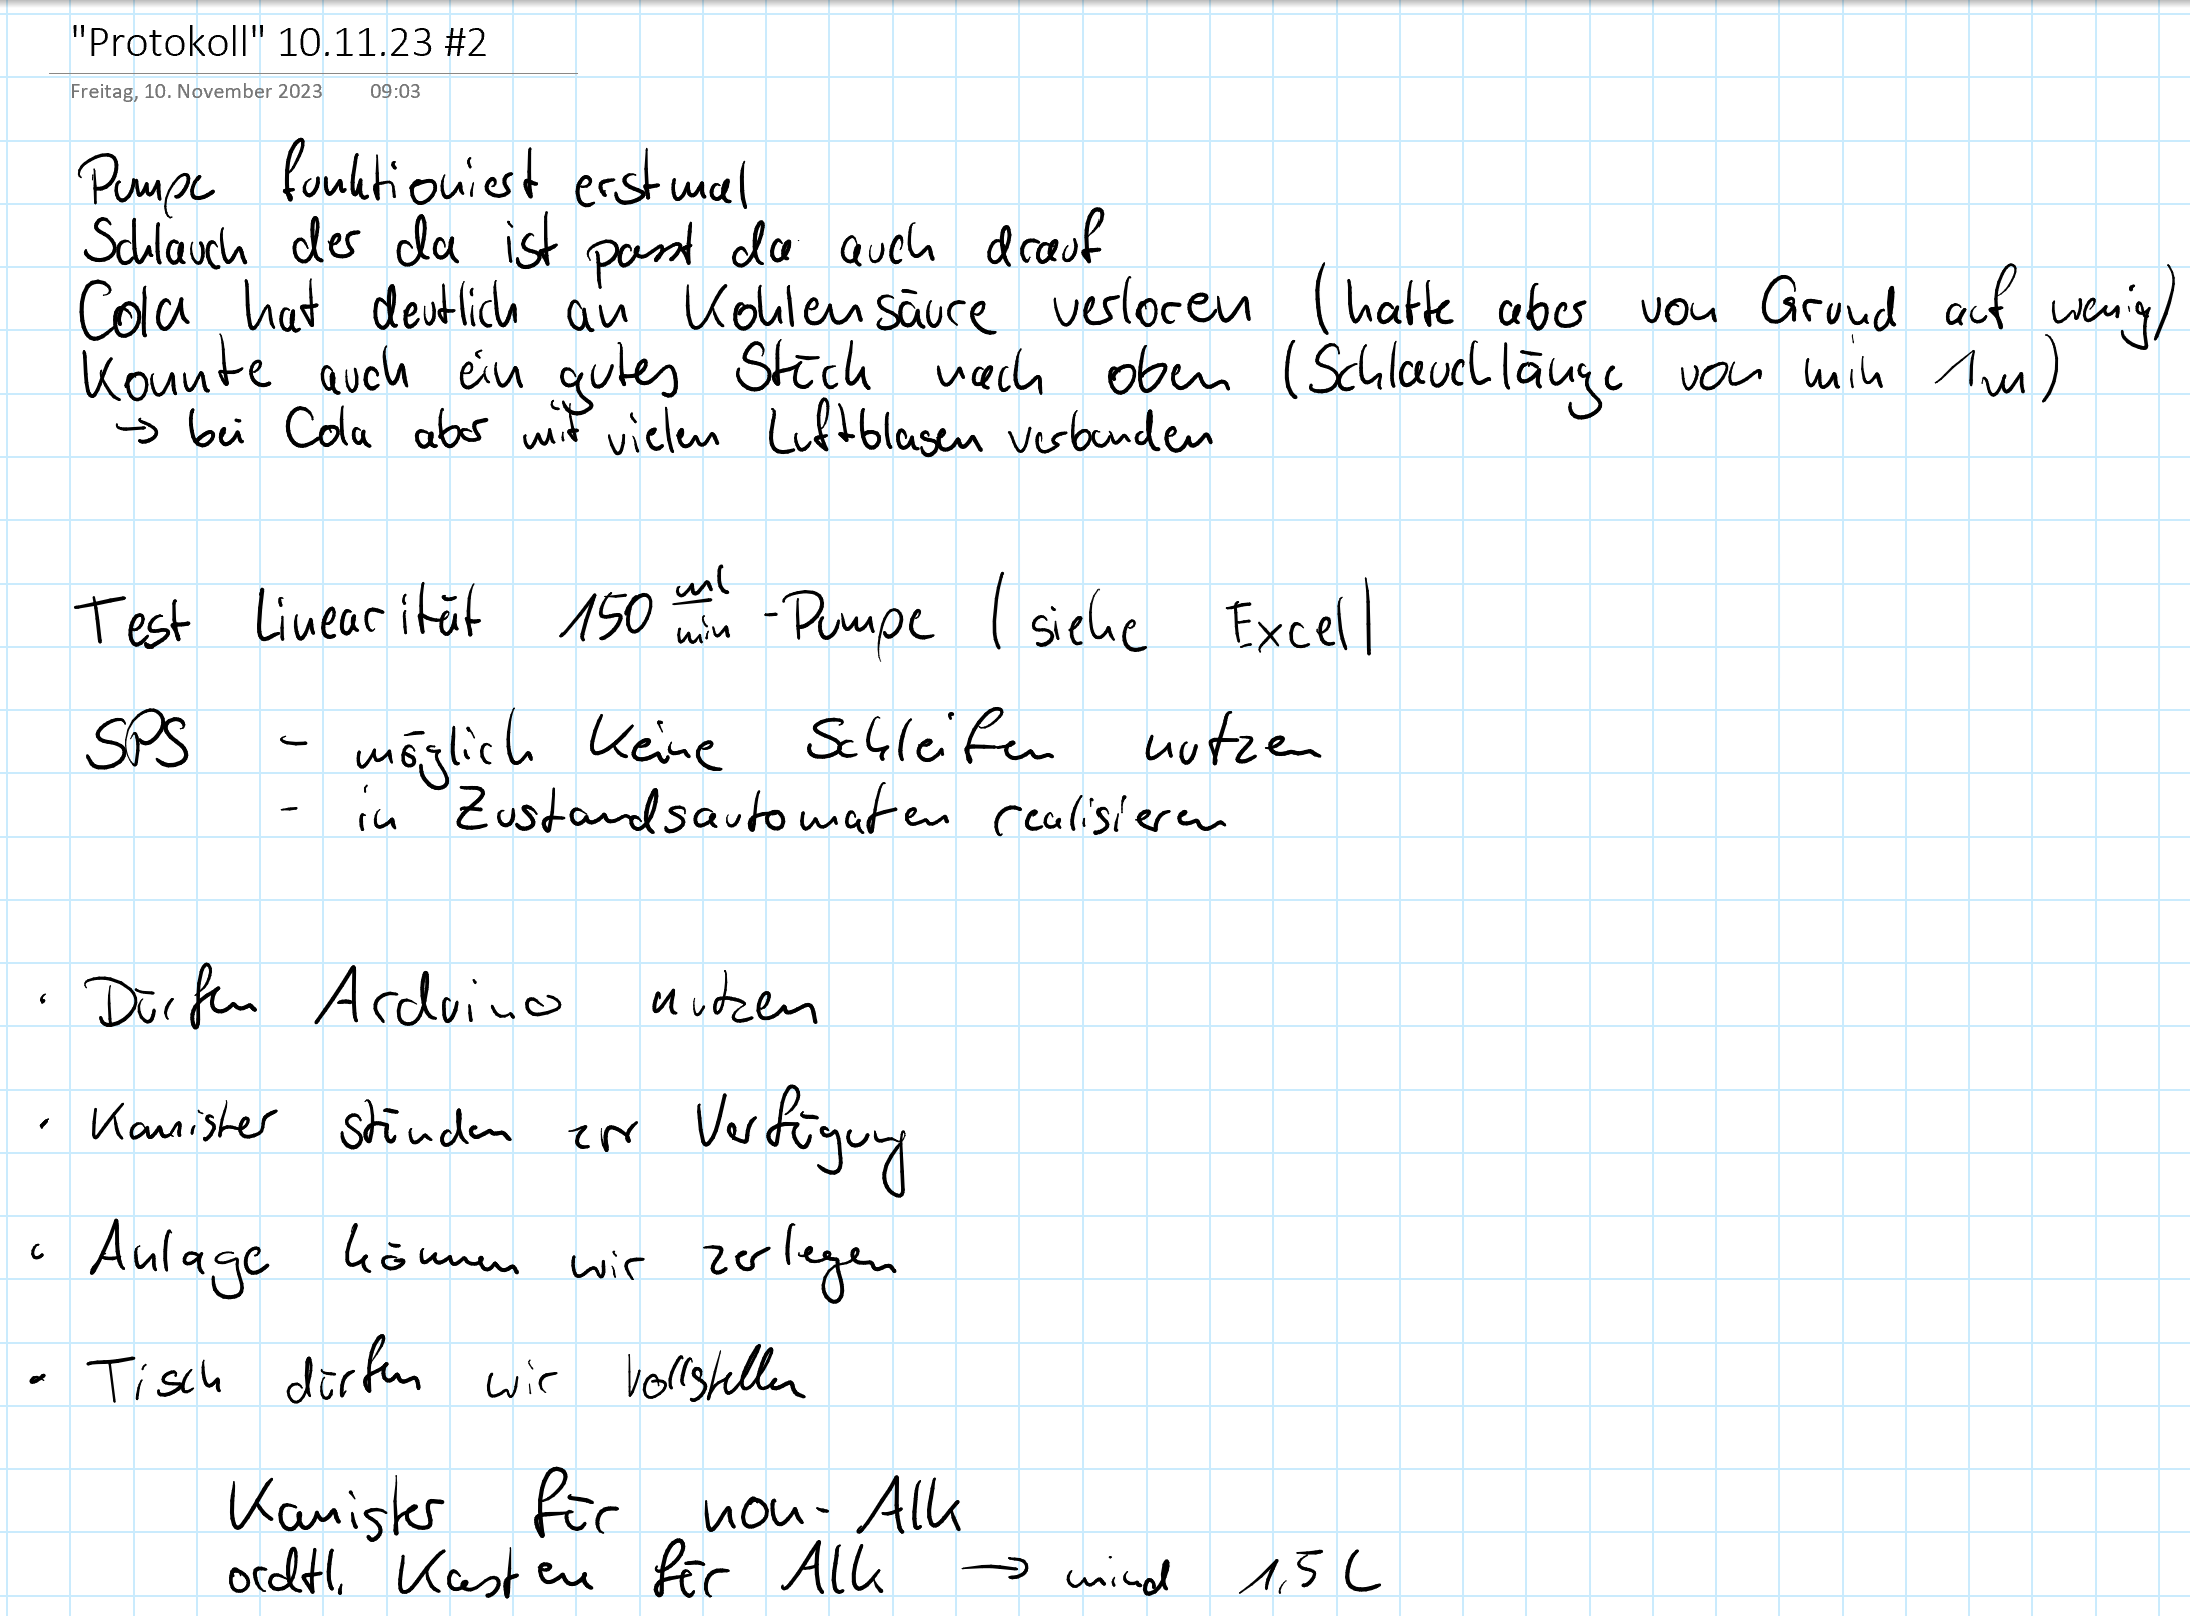 "Protokoll" 10.11.23 #2
Freitag, 10. November 2023 09:03
Pumpe funktioniert erstmal
Schlauch der da ist passt da auch drauf
Cola hat deutlich an Kohlensäure verloren (hatte aber von Grund auf wenig)
Konnte auch ein gutes Stück nach oben (Schlauchlänge von min 1m)
→ bei Cola aber mit vielen Luftblasen verbunden
Test Linearität 150 ml/min -Pumpe (siehe Excel)
SPS - möglich keine Schleifen nutzen
- in Zustandsautomaten realisieren
· Dürfen Arduino nutzen
· Kanister stünden zur Verfügung
· Anlage können wir zerlegen
· Tisch dürfen wir vollstellen
Kanister für non-Alk
ordtl. Kasten für Alk → mind 1,5 L